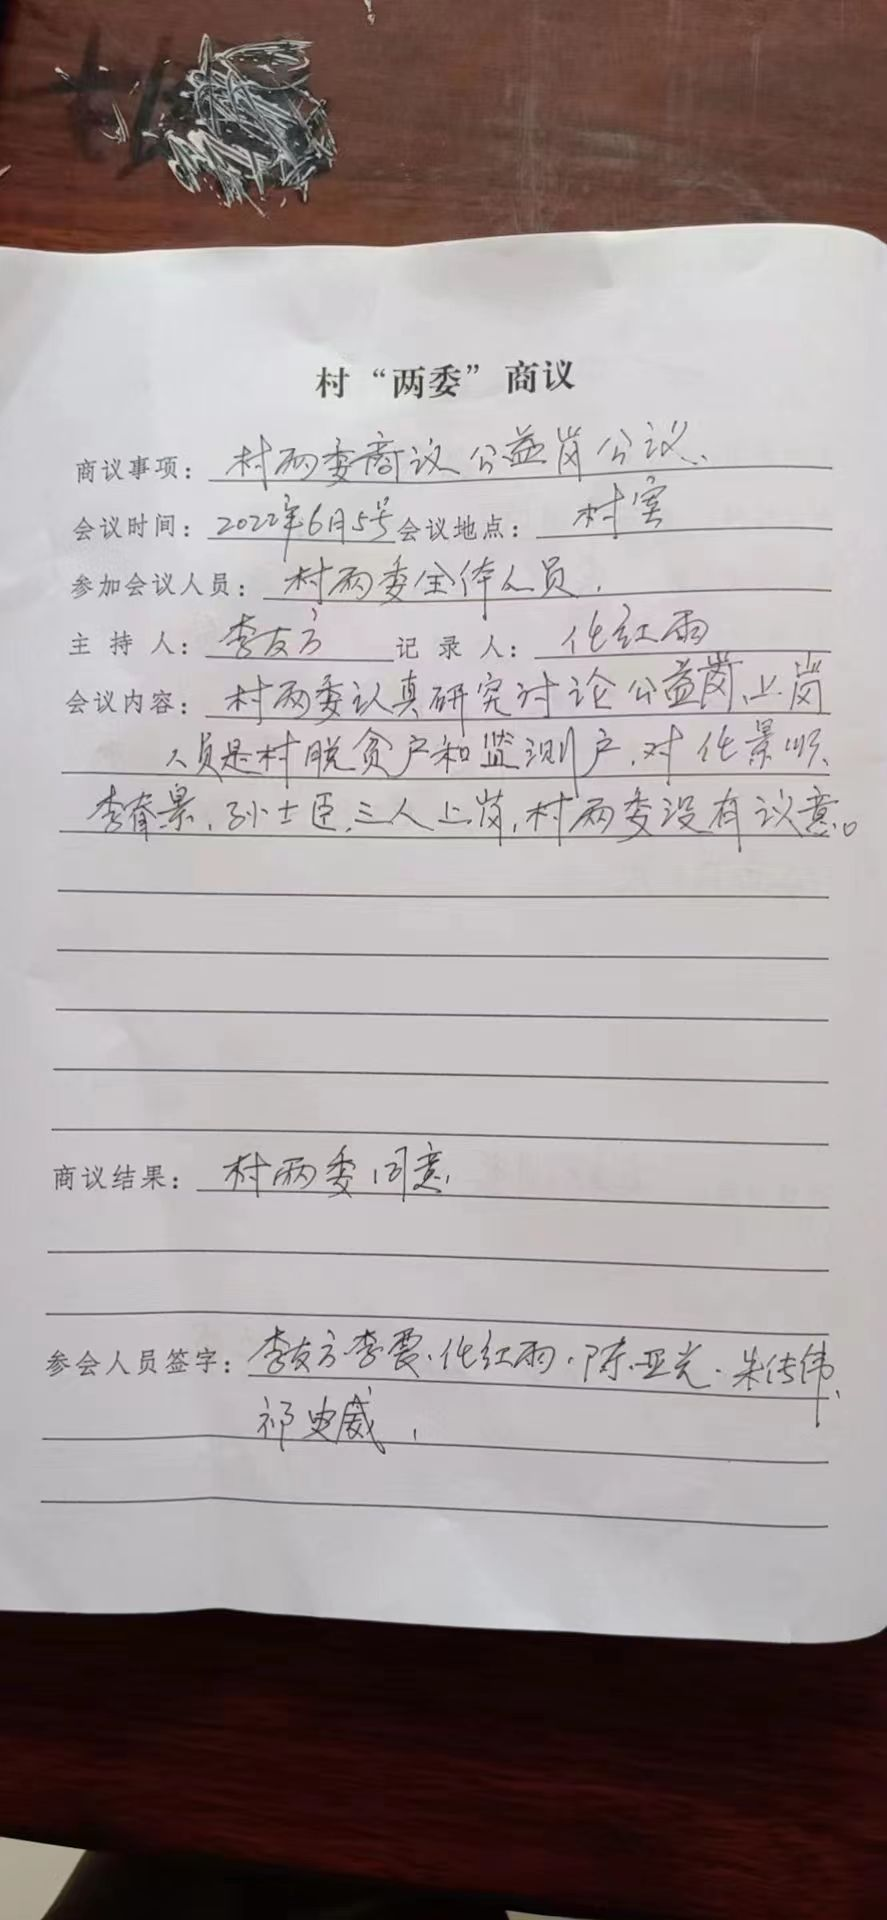 村“两委”商议
商议事项：村两委商议公益岗公议、
会议时间：2022年6月5号会议地点：村室
参加会议人员：村两委全体人员.
主持人：李友方 记录人：化红雨
会议内容：村两委认真研究讨论公益岗上岗
人员是村脱贫户和监测户.对化景顺、
李春景.孙士臣.三人上岗,村两委没有议意。
商议结果：村两委同意
参会人员签字：李友方李震.化红雨.陈亚光.朱传伟、
祁史威.